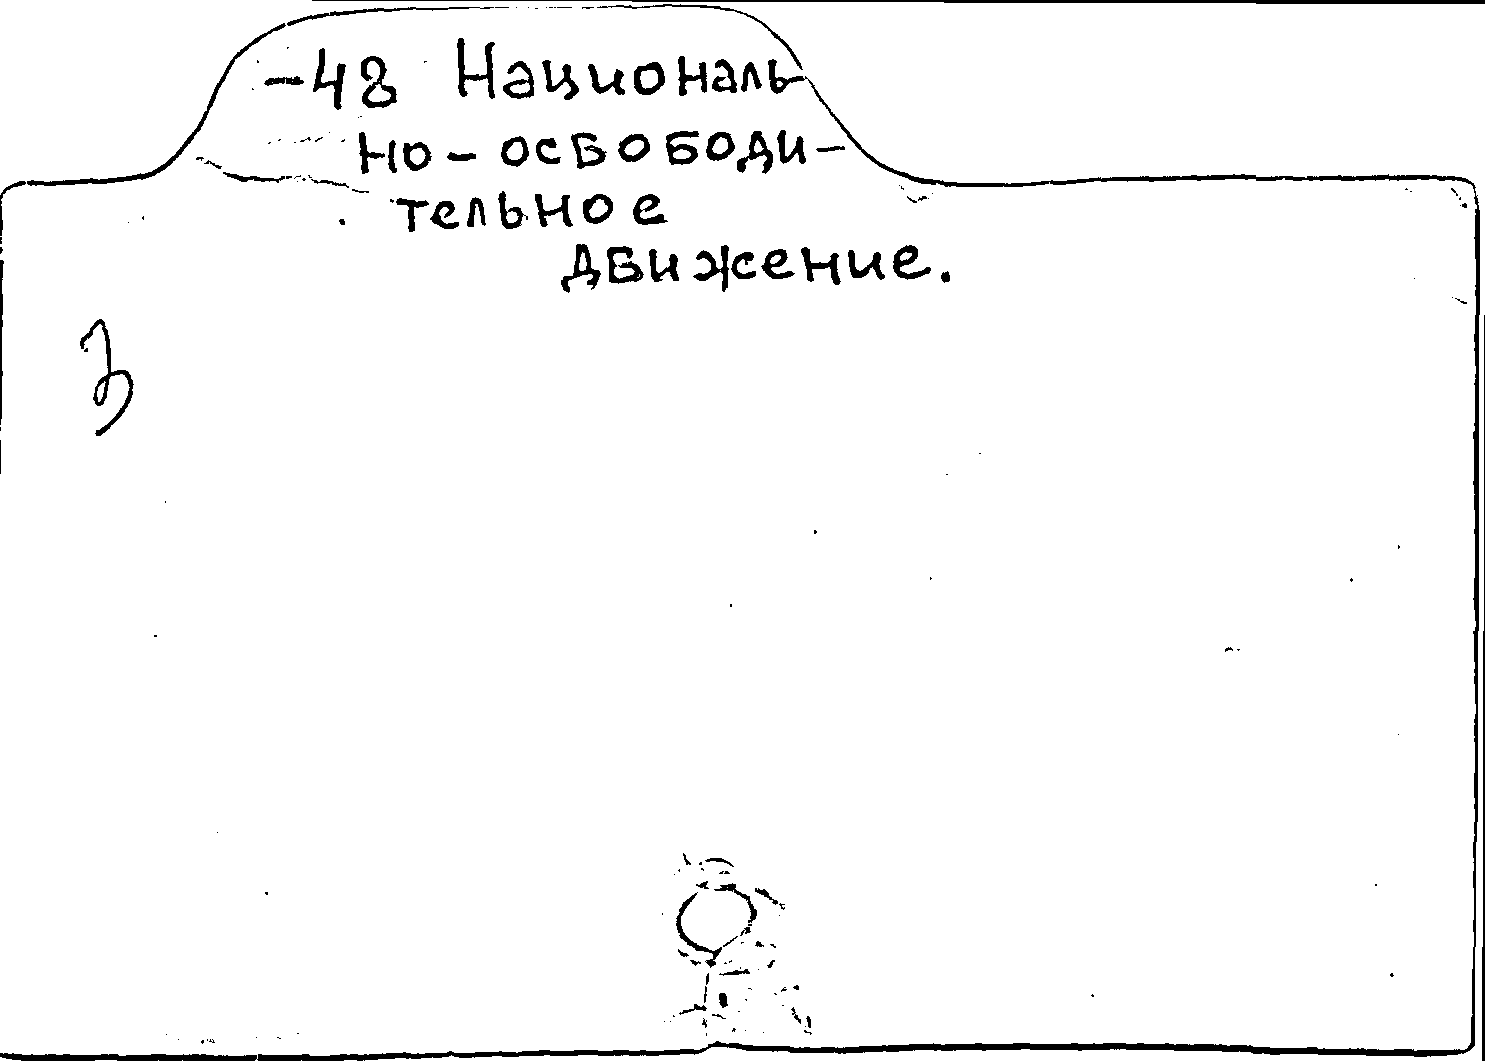 -48 Националь-
но-освободи-
тельное
движение.